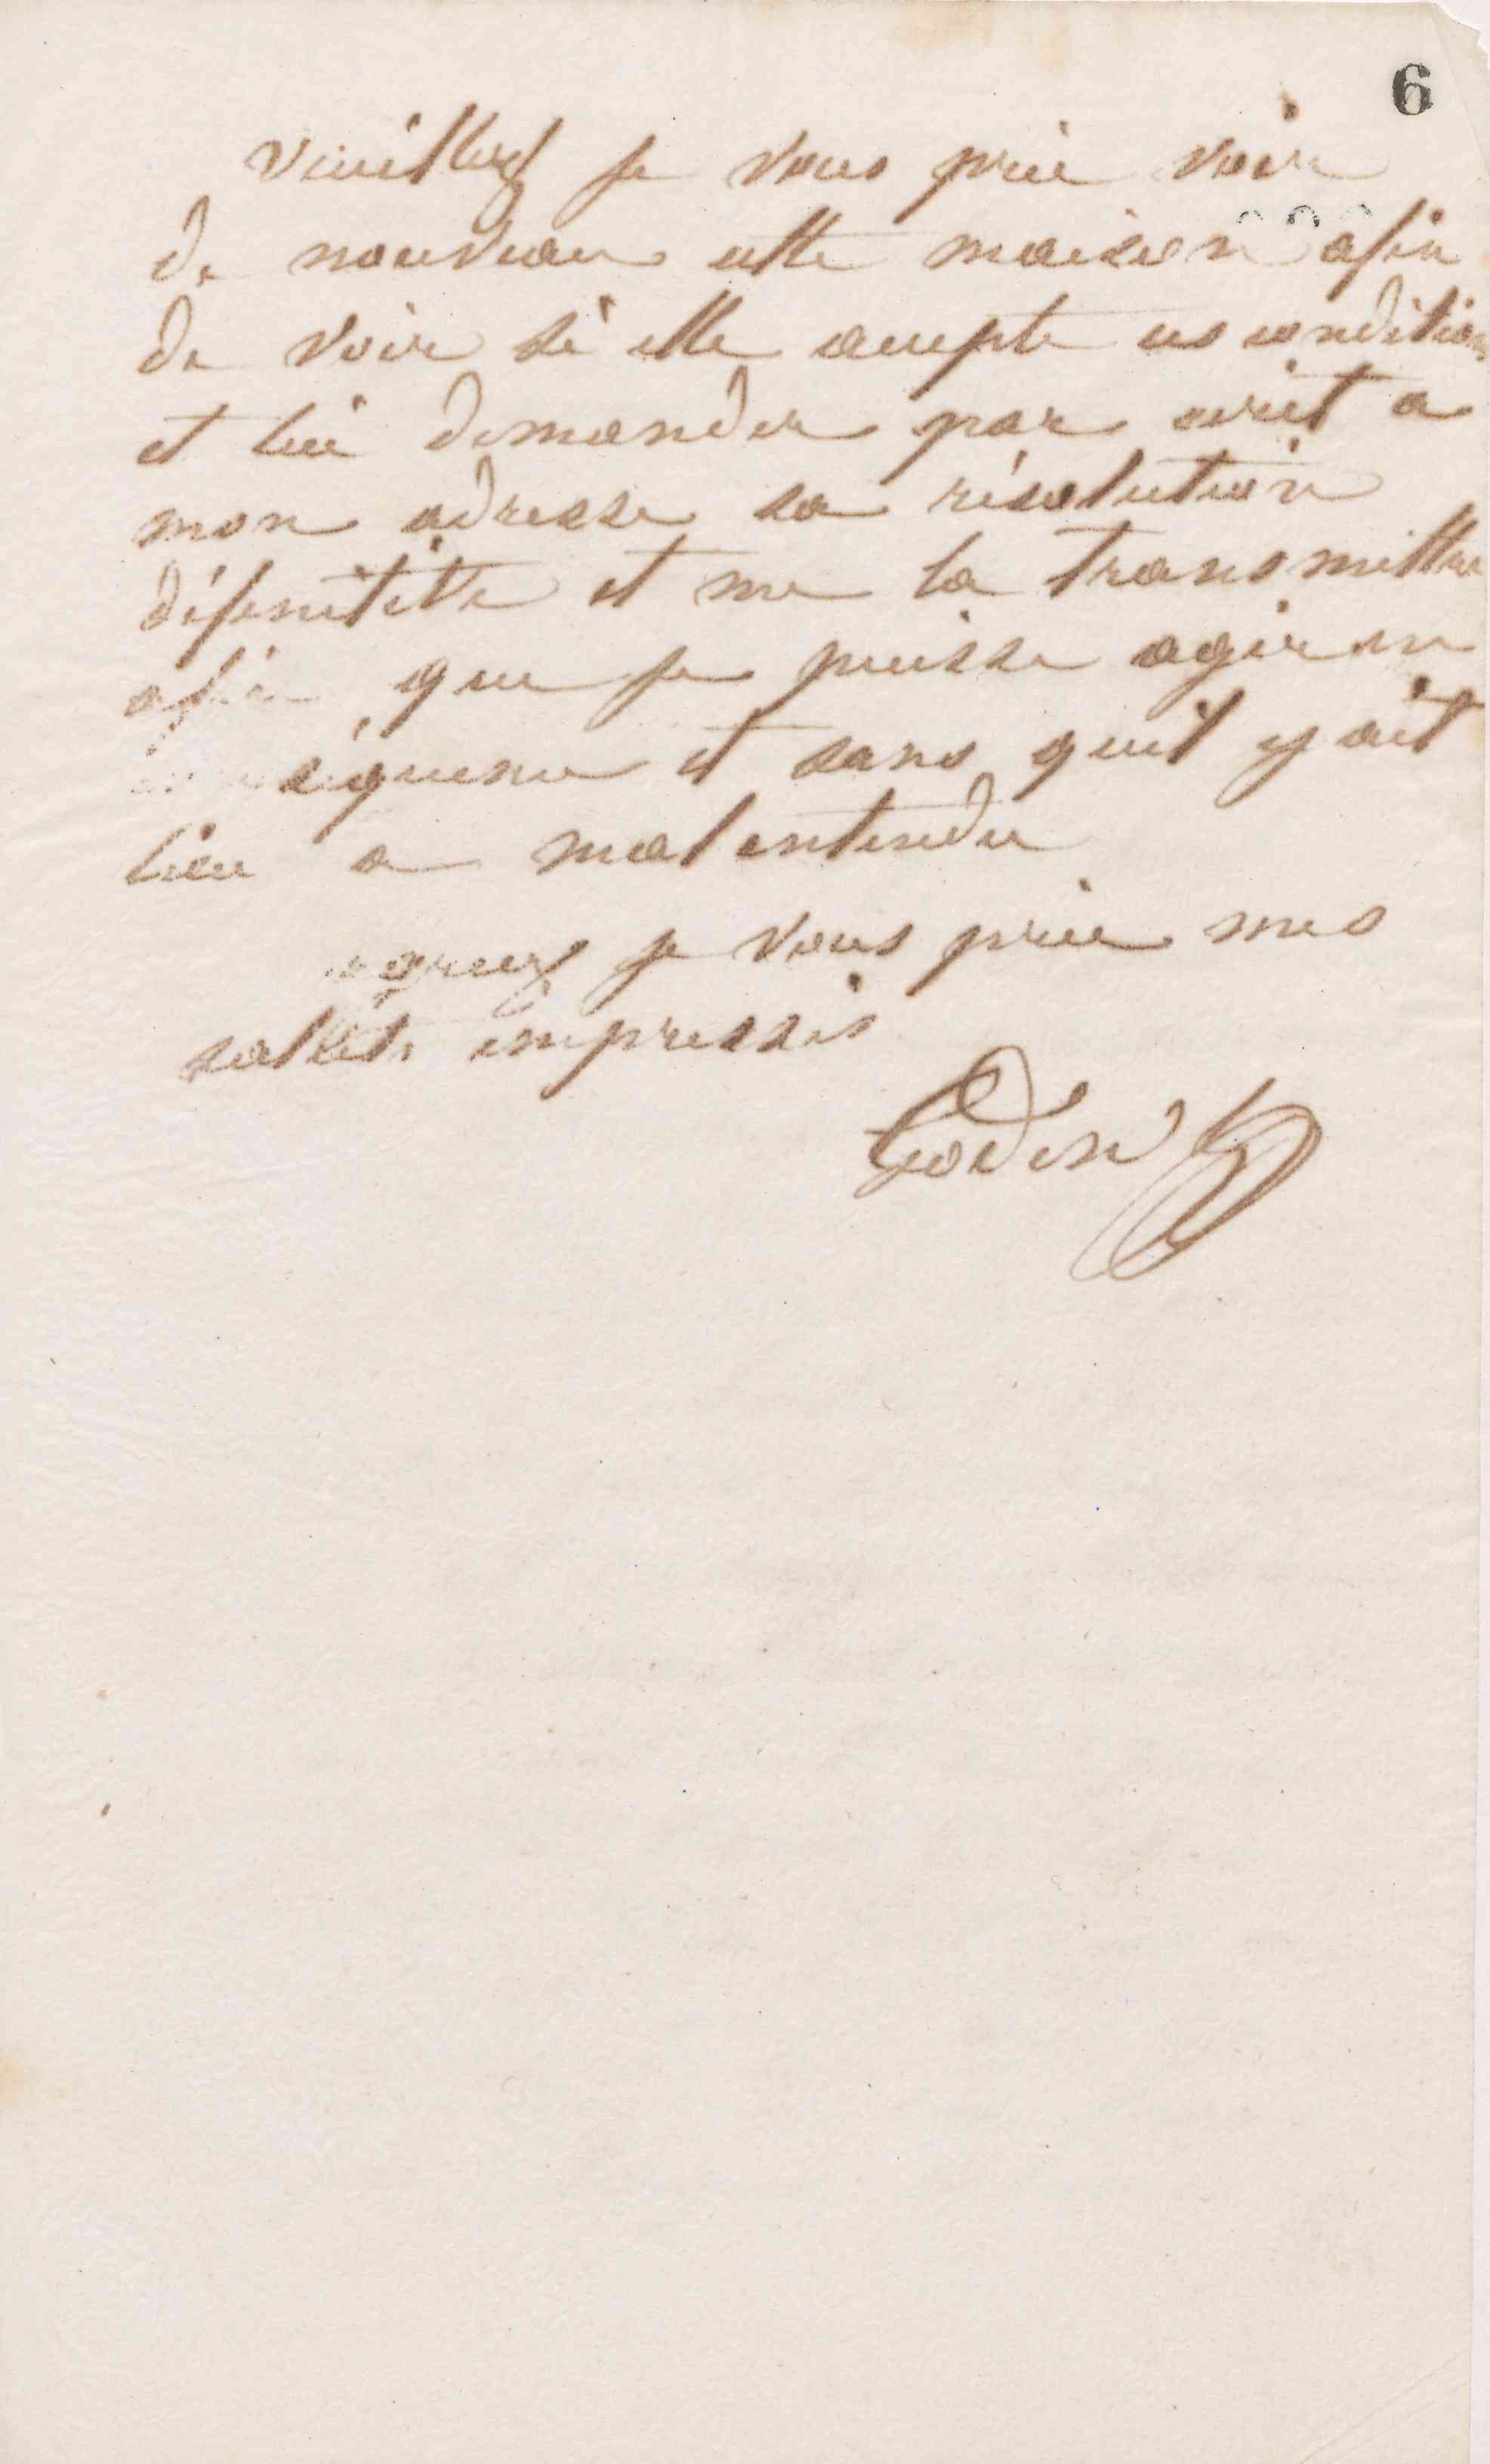 6
veuillez je vous prie voir
de nouveau cette maison afin
de voir si elle accepte ces conditions
et lui demander par écrit a
mon adresse sa résolution
définitive et me la transmettre
afin que je puisse agir en
séquence et sans quil y ait
lieu a malentendu
agreez je vous prie mes
empressés
Godin